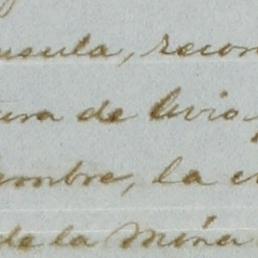 usula, recon
tura de Avio
iembre, la e
de la Mina